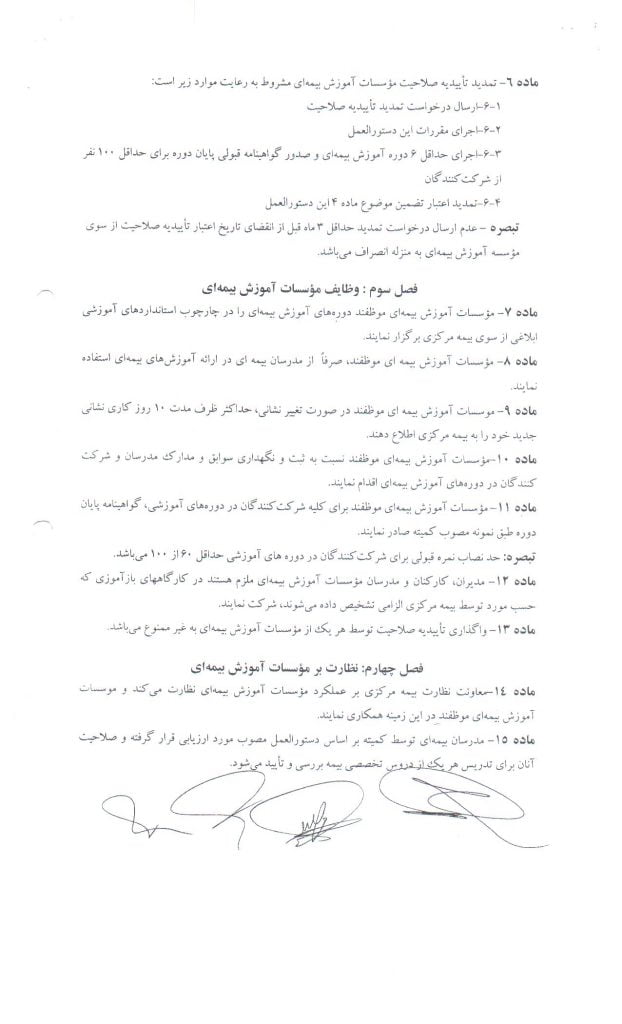 ماده ٦- تمدید تأییدیه صلاحیت مؤسسات آموزش بیمه‌ای مشروط به رعایت موارد زیر است:
٦-١-ارسال درخواست تمدید تأییدیه صلاحیت
٦-٢-اجرای مقررات این دستورالعمل
٦-٣-اجرای حداقل ٦ دوره آموزش بیمه‌ای و صدور گواهینامه قبولی پایان دوره برای حداقل ١٠٠ نفر
از شرکت‌کنندگان
٦-٤-تمدید اعتبار تضمین موضوع ماده ٤ این دستورالعمل
تبصره - عدم ارسال درخواست تمدید حداقل ٣ ماه قبل از انقضای تاریخ اعتبار تأییدیه صلاحیت از سوی
مؤسسه آموزش بیمه‌ای به منزله انصراف می‌باشد.
فصل سوم : وظایف مؤسسات آموزش بیمه‌ای
ماده ٧- مؤسسات آموزش بیمه‌ای موظفند دوره‌های آموزش بیمه‌ای را در چارچوب استانداردهای آموزشی
ابلاغی از سوی بیمه مرکزی برگزار نمایند.
ماده ٨- مؤسسات آموزش بیمه ای موظفند، صرفاً از مدرسان بیمه ای در ارائه آموزش‌های بیمه‌ای استفاده
نمایند.
ماده ٩- موسسات آموزش بیمه ای موظفند در صورت تغییر نشانی، حداکثر ظرف مدت ١٠ روز کاری نشانی
جدید خود را به بیمه مرکزی اطلاع دهند.
ماده ١٠-مؤسسات آموزش بیمه‌ای موظفند نسبت به ثبت و نگهداری سوابق و مدارک مدرسان و شرکت
کنندگان در دوره‌های آموزش بیمه‌ای اقدام نمایند.
ماده ١١-مؤسسات آموزش بیمه‌ای موظفند برای کلیه شرکت‌کنندگان در دوره‌های آموزشی، گواهینامه پایان
دوره طبق نمونه مصوب کمیته صادر نمایند.
تبصره: حد نصاب نمره قبولی برای شرکت‌کنندگان در دوره های آموزشی حداقل ٦٠ از ١٠٠ می‌باشد.
ماده ١٢- مدیران، کارکنان و مدرسان مؤسسات آموزش بیمه‌ای ملزم هستند در کارگاههای بازآموزی که
حسب مورد توسط بیمه مرکزی الزامی تشخیص داده می‌شوند، شرکت نمایند.
ماده ١٣- واگذاری تأییدیه صلاحیت توسط هر یک از مؤسسات آموزش بیمه‌ای به غیر ممنوع می‌باشد.
فصل چهارم: نظارت بر مؤسسات آموزش بیمه‌ای
ماده ١٤-معاونت نظارت بیمه مرکزی بر عملکرد مؤسسات آموزش بیمه‌ای نظارت می‌کند و موسسات
آموزش بیمه‌ای موظفند در این زمینه همکاری نمایند.
ماده ١٥- مدرسان بیمه‌ای توسط کمیته بر اساس دستورالعمل مصوب مورد ارزیابی قرار گرفته و صلاحیت
آنان برای تدریس هر یک از دروس تخصصی بیمه بررسی و تأیید می‌شود.